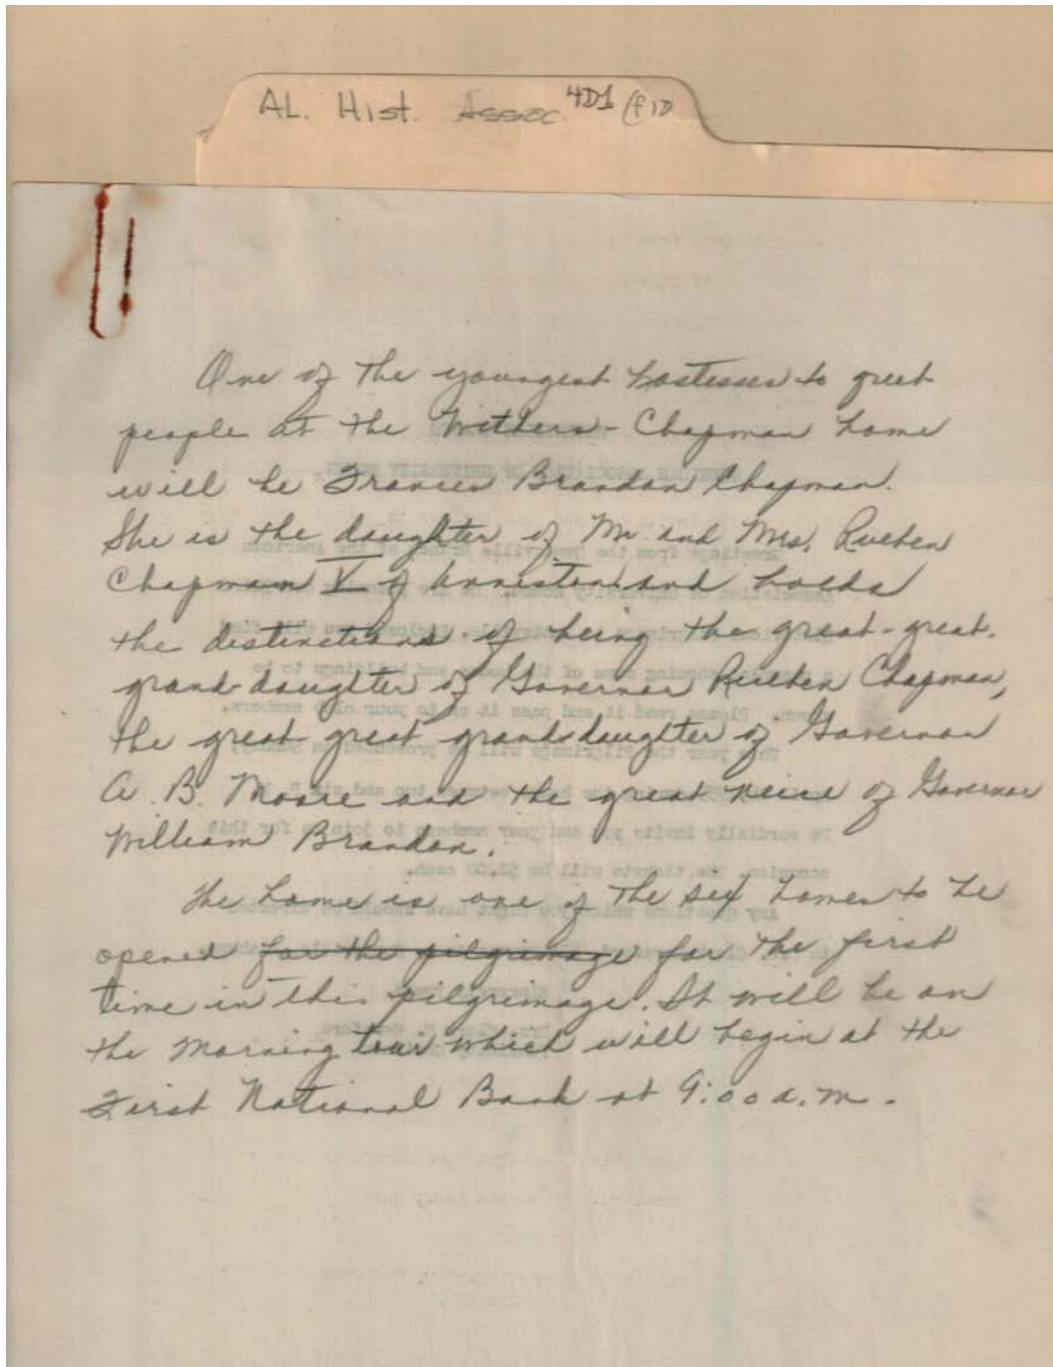 AL. Hist. Assoc. 4D1 (f1D
One of the youngest hostesses to greet
people at the Withers-Chapman home
will be Frances Brandon Chapman.
She is the daughter of Mr and Mrs. Rueben
Chapman V of Anniston and holds
the distinction of being the great-great-
grand-daughter of Governor Rueben Chapman,
the great great granddaughter of Governor
A. B. Moore and the great neice of Governor
William Brandon.
The home is one of the six homes to be
opened for the pilgrimage for the first
time in this pilgrimage. It will be on
the morning tour which will begin at the
First National Bank at 9:00 a.m.